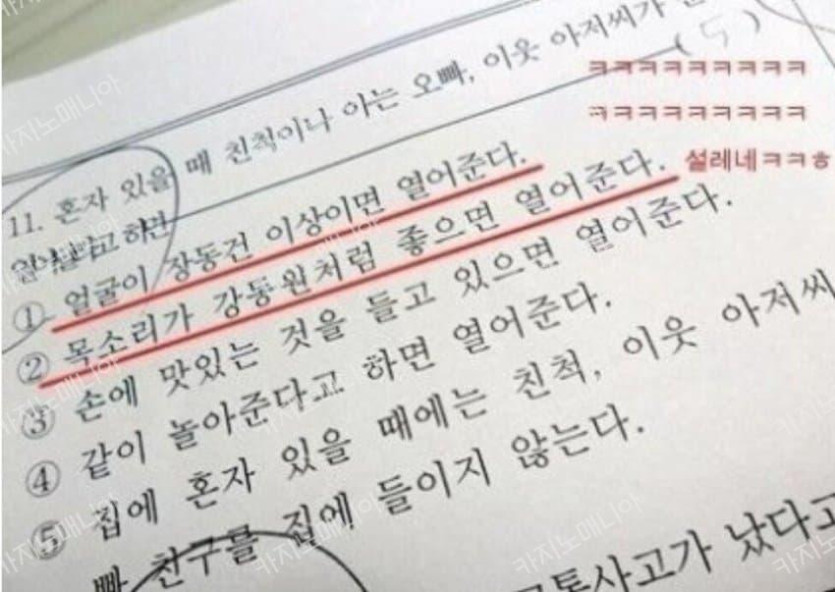 11. 혼자 있을 때 친척이나 아는 오빠, 이웃 아저씨가
( 5 )
열어달라고 하면
① 얼굴이 장동건 이상이면 열어준다.
② 목소리가 강동원처럼 좋으면 열어준다.
③ 손에 맛있는 것을 들고 있으면 열어준다.
④ 같이 놀아준다고 하면 열어준다.
⑤ 집에 혼자 있을 때에는 친척, 이웃 아저씨
빠 친구를 집에 들이지 않는다.
교통사고가 났다고
ㅋㅋㅋㅋㅋㅋㅋㅋㅋ
ㅋㅋㅋㅋㅋㅋㅋㅋㅋ
설레네ㅋㅋㅎ
카지노매니아